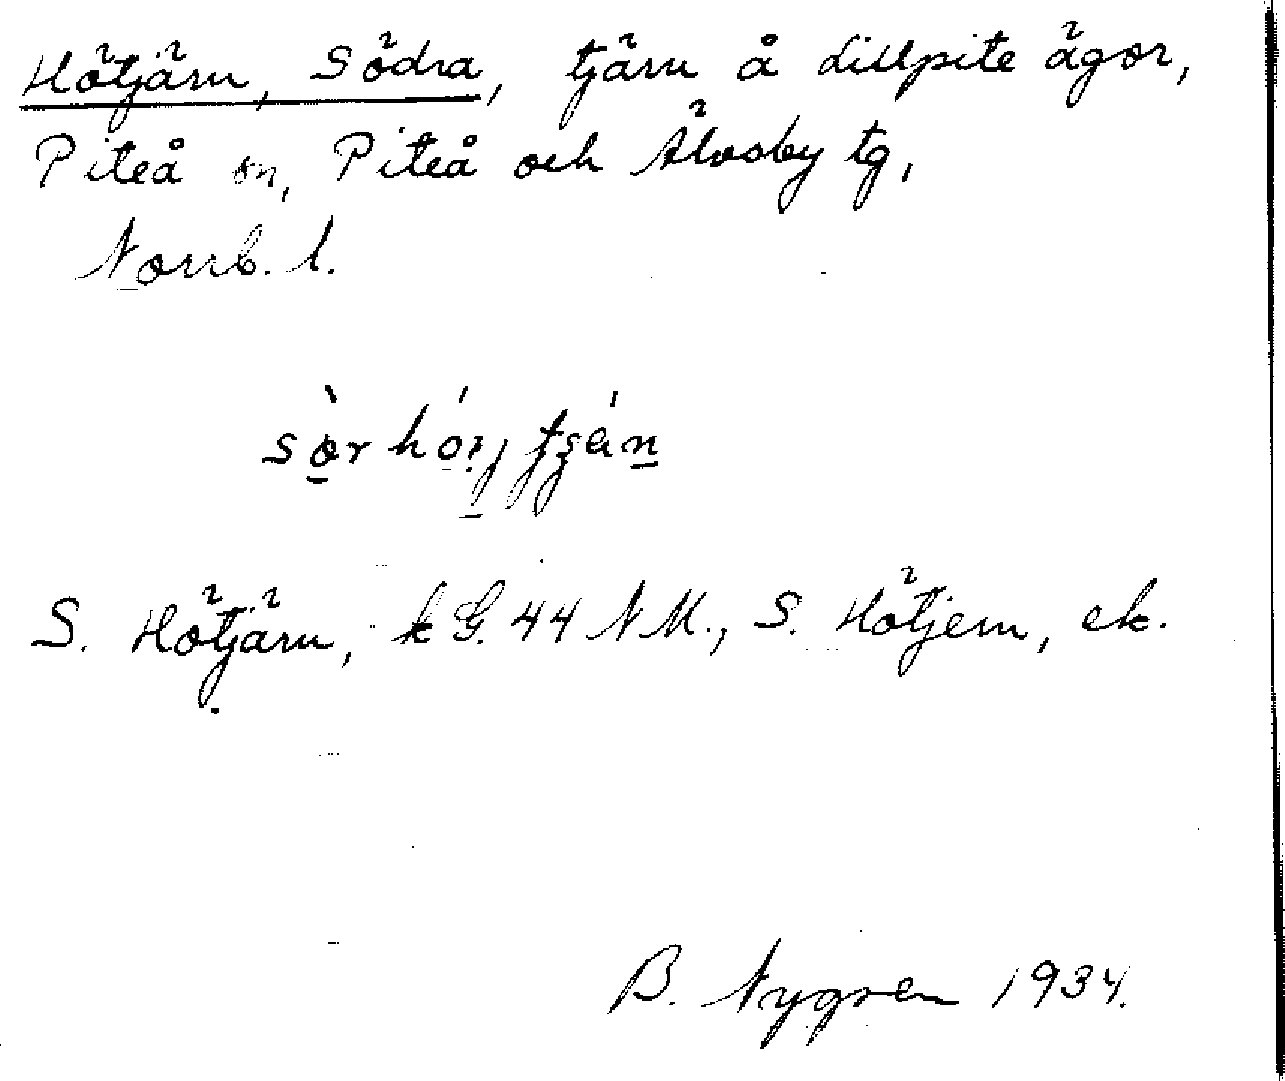 Hötjärn, Södra, tjärn å Lillpite ägor,
Piteå sn, Piteå och Älvsby tg,
Norrb. l.
S. Hötjärn, k G. 44 NM., S. Hötjern, ek.
B. Nygren 1934.